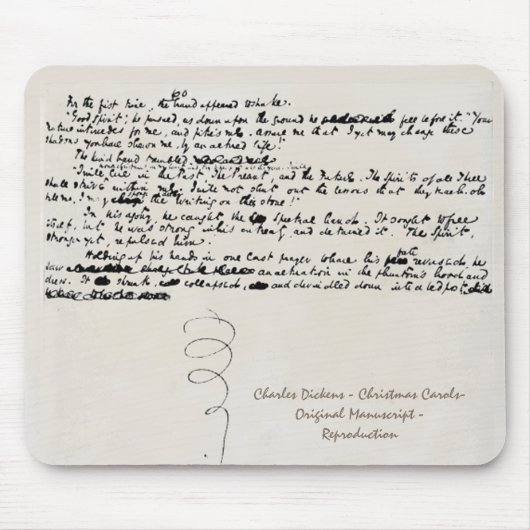 60
For the first time, the hand appeared to shake.
"Good Spirit; he pursued, as down upon the ground he fell before it: "Your
nature intercedes for me, and pities me. assure me that I yet may change these
shadows you have shewn me, by an altered life!"
The kind hand trembled.
"I will live in the Past, the Present, and the Future. The Spirits of all Three
shall strive within me. I will not shut out the lessons that they teach. oh
tell me, I may the writing on this stone!"
In his agony, he caught the spectral hand. It sought to free
itself, but he was strong in his entreaty, and detained it. The Spirit,
stronger yet, repulsed him.
Holding up his hands in one last prayer to have his fate reversed, he
saw an alteration in the phantom's hood and
dress. It shrunk, collapsed, and dwindled down into a bedpost
Charles Dickens - Christmas Carols-
Original Manuscript -
Reproduction